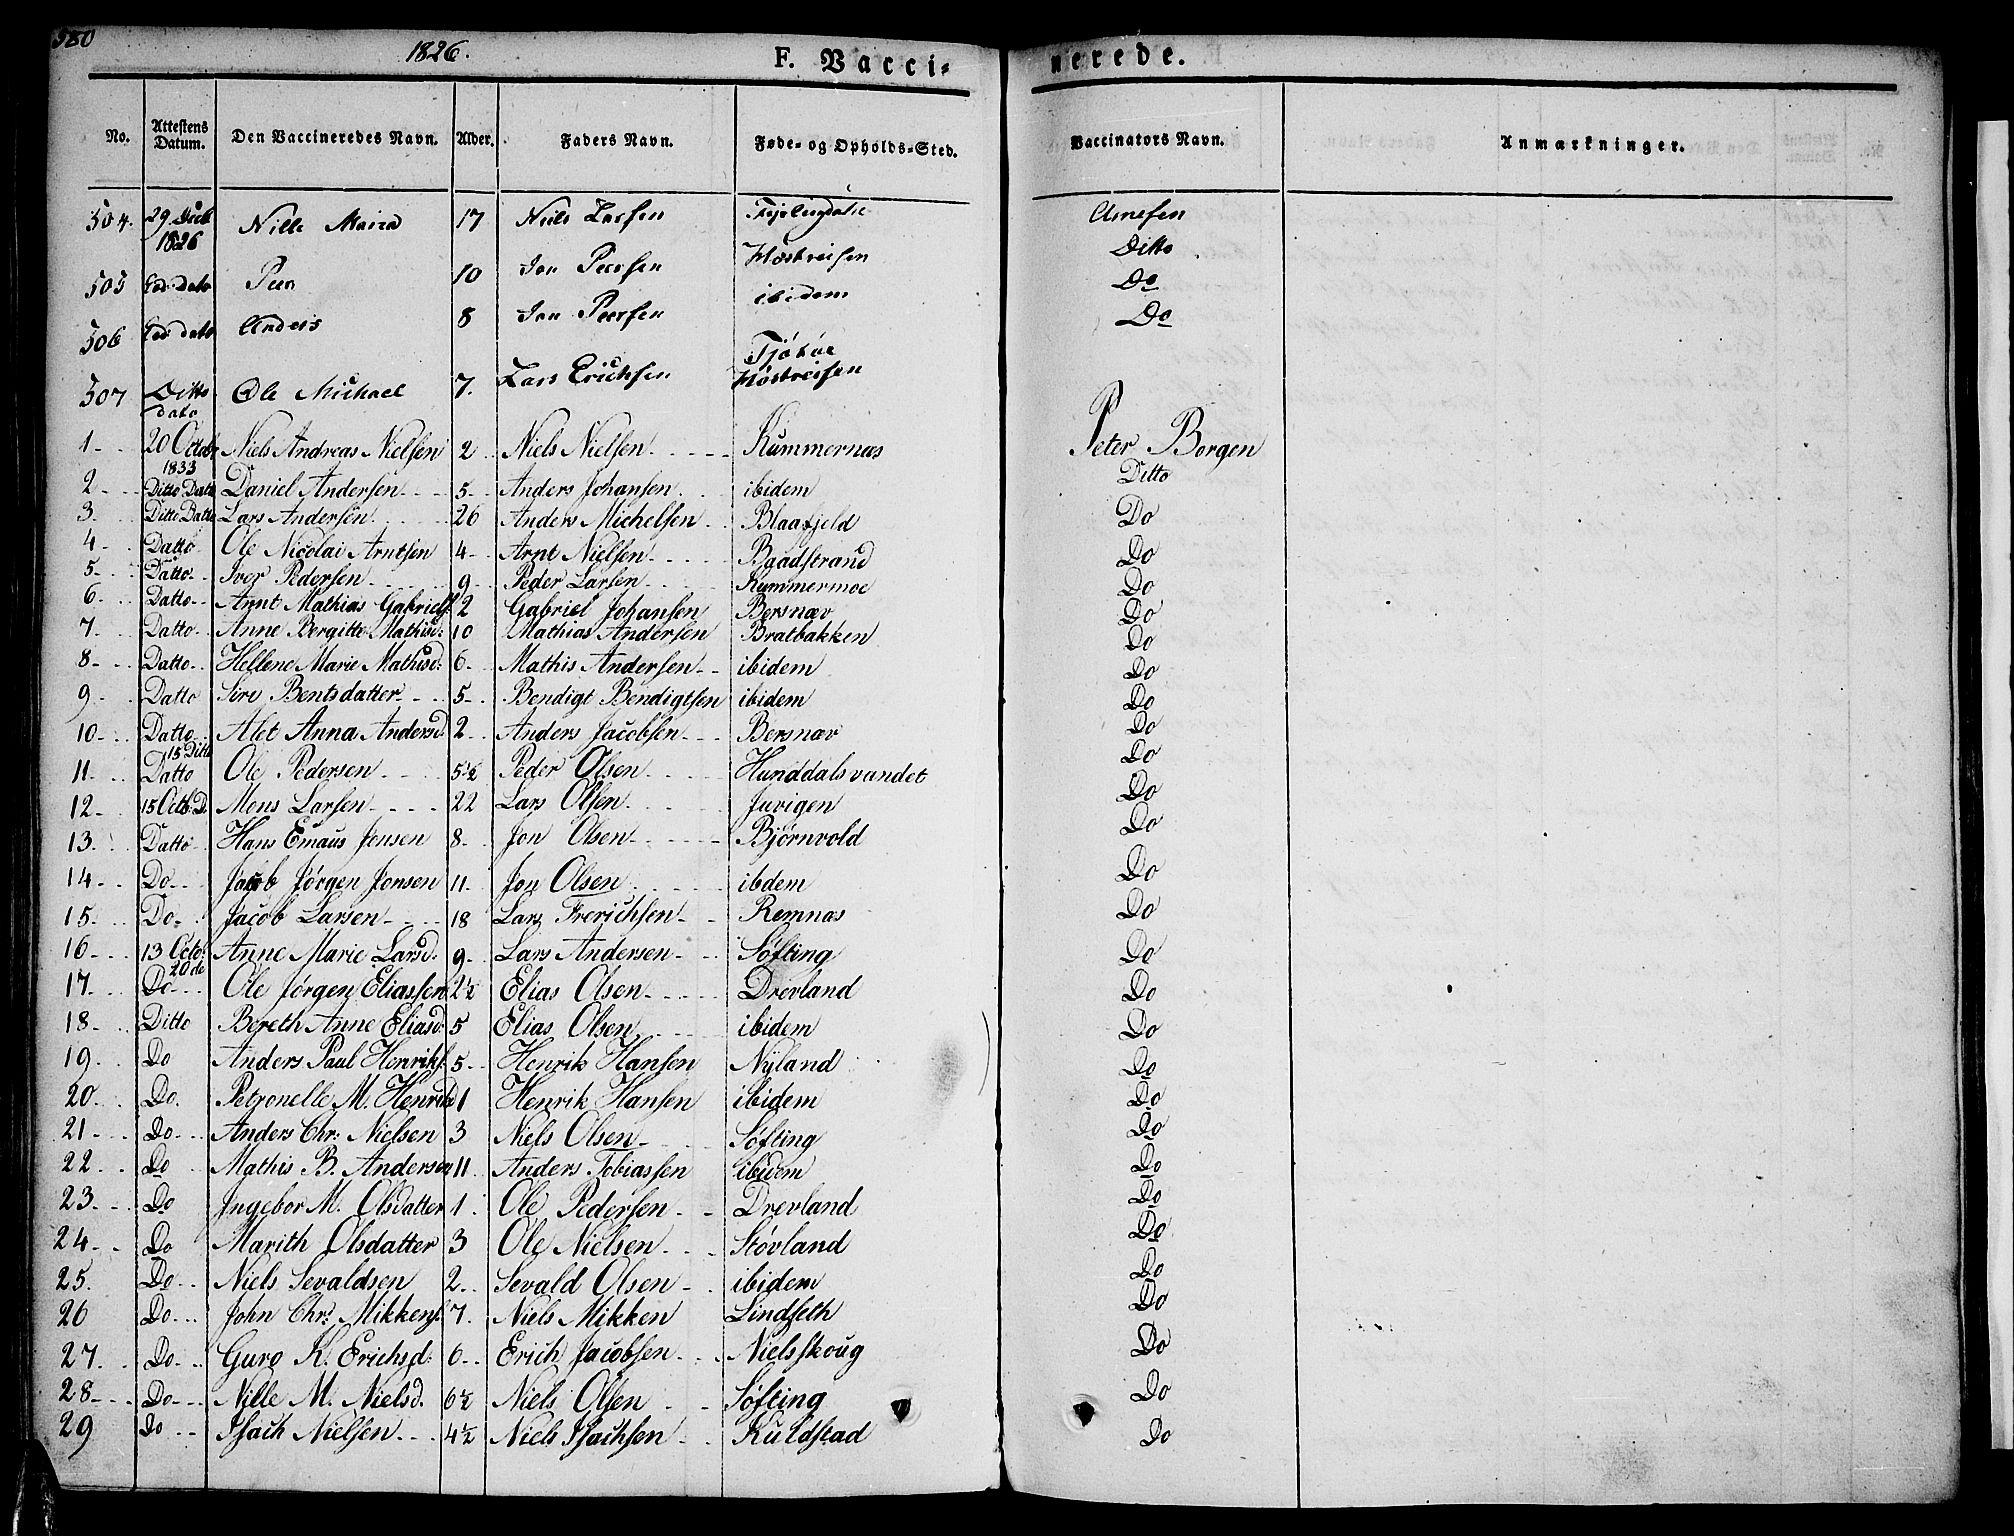 380
1826.
F. Vacci-
nerede.
No. Attestens Datum. Den Vaccineredes Navn. Alder. Faders Navn. Føde- og Opholds-Sted. Vaccinators Navn. Anmarkninger.
504. 29 Decb 1826 Nille Maria 17 Niels Larsen Arnesen
505 Eod: dato Peer 10 Jon Peersen Høstreisen Ditto
506 Eod: dato Anders 8 Jon Peersen ibidem Do
507 Ditto dato Ole Michael 7. Lars Erichsen Tjötöe Høstreisen Do
1 20 Octobr 1833 Niels Andreas Nielsen 2 Niels Nielsen Kummernas Peter Borgen
2 Ditto Datto Daniel Andersen 5 Anders Johansen ibidem Ditto
3. Ditto Datto Lars Andersen 26 Anders Michelsen Blaafjeld Do
4 Datto Ole Nicolai Arntsen 4 Arnt Nielsen Baadstrand Do
5 Datto Iver Pedersen 9 Peder Larsen Kummermoe Do
6 Datto Arnt Mathias Gabriels 2 Gabriel Johansen Bersnæv Do
7 Datto Anne Bergitte Mathisd: 10 Mathias Andersen Bratbakken Do
8 Datto Hellene Marie Mathisd: 6 Mathis Andersen ibidem Do
9 Datto Siri Bentsdatter 5 Bendigt Bendigtsen ibidem Do
10 Datto Alet Anna Andersd. 2 Anders Jacobsen Bersnæv Do
11 15 Ditto Datto Ole Pedersen 5½ Peder Olsen Hunddalsvandet Do
12 15 Octb. D. Mons Larsen 22 Lars Olsen Juvigen Do
13. Datto Hans Emaus Jonsen 8 Jon Olsen Bjørnvold Do
14 Do Jacob Jørgen Jonsen 11 Jon Olsen ibdem Do
15 Do Jacob Larsen 18 Lars Frerichsen Remnas Do
16 13 Octo: Anne Marie Larsd. 9 Lars Andersen Søfting Do
17 20de Do Ole Jørgen Eliassen 2½ Elias Olsen Drevland Do
18 Ditto Bereth Anne Eliasd: 5 Elias Olsen ibidem Do
19 Do Anders Paul Henriks. 5 Henrik Hansen Nÿland Do
20 Do. Petronelle M. Henrikd 1 Henrik Hansen ibidem Do
21 Do Anders Chr: Nielsen 3 Niels Olsen Søfting Do
22 Do Mathis B. Andersen 11 Anders Tobiassen ibidem Do
23 Do Ingebor M. Olsdatter 1 Ole Pedersen Drevland Do
24 Do Marith Olsdatter 3 Ole Nielsen Støvland Do
25. Do Niels Sevaldsen 2 Sevald Olsen ibidem Do
26 Do John Chr: Mikkens. 7. Niels Mikken Lindseth Do
27. Do Guro K. Erichsd: 6 Erich Jacobsen Nielsskoug Do
28 Do Nille M. Nielsd. 6½ Niels Olsen Søfting Do
29 Do Isach Nielsen 4½ Niels Isachsen Kuldstad Do